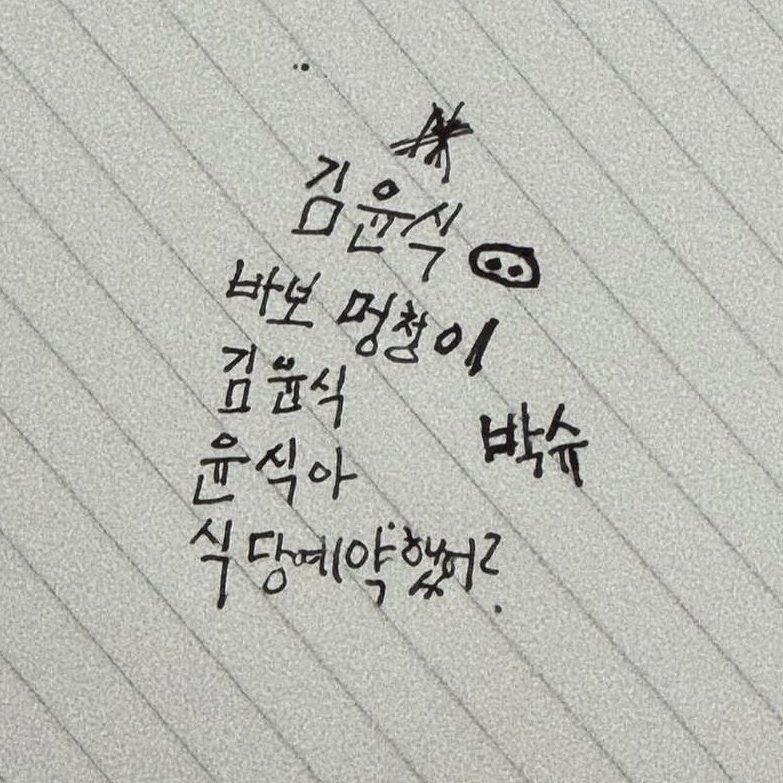 김윤식
바보 멍청이
김윤식
박슈
윤식아
식당예약했어?